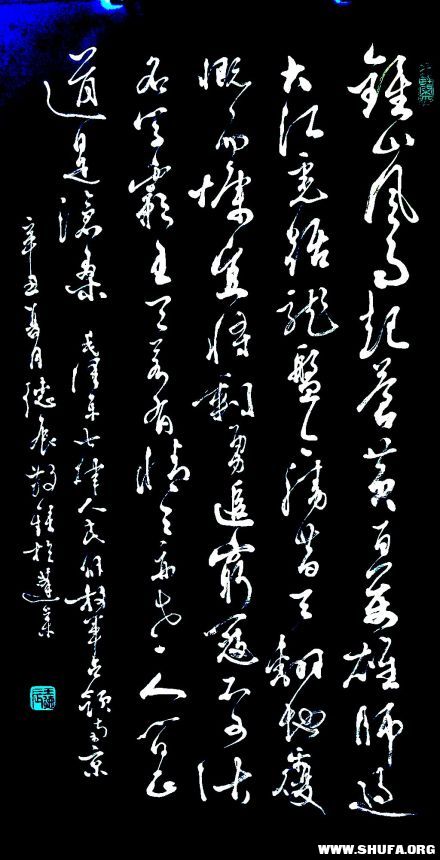 鍾山風雨起蒼黄百萬雄師過
大江虎踞龍盤今勝昔天翻地覆
慨而慷宜將剩勇追窮寇不可沽
名学霸王天若有情天亦老人間正
道是滄桑 毛澤東七律人民解放軍占領南京
辛丑春月 敬錄於蓬莱
WWW.SHUFA.ORG